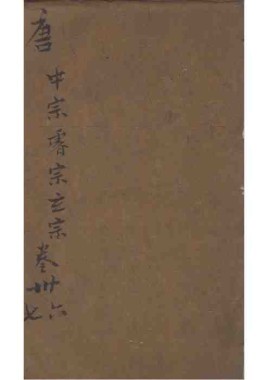 唐
中宗睿宗玄宗卷卅六
七